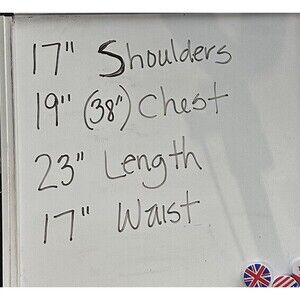 17" Shoulders
19" (38") Chest
23" Length
17" Waist